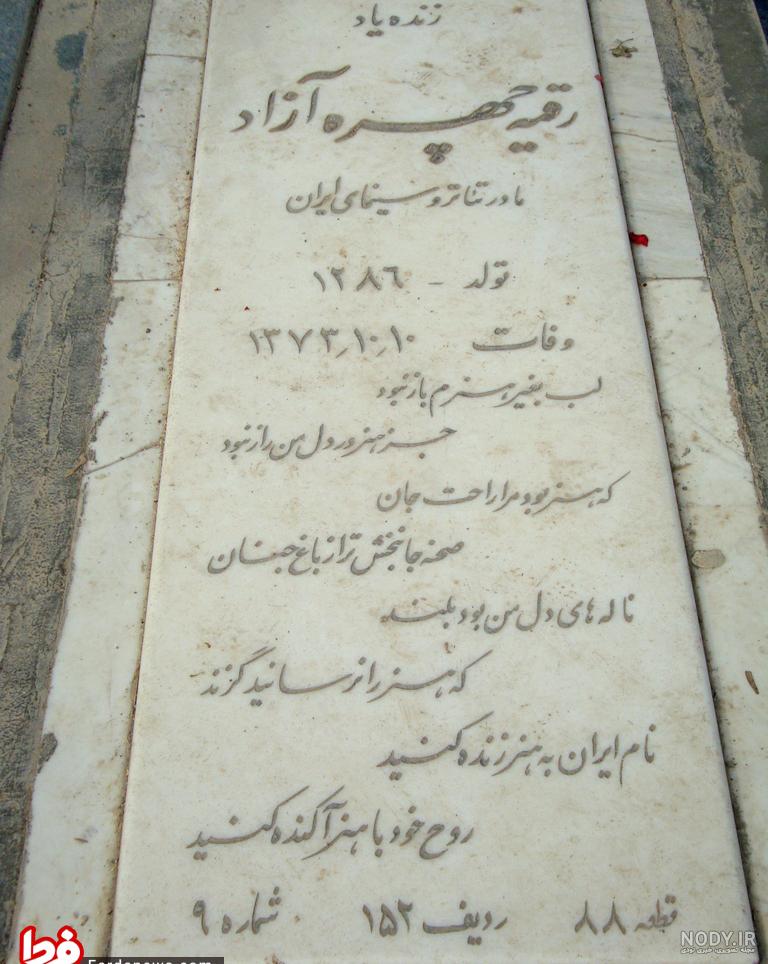 زنده یاد
رقمیه چهره آزاد
مادر تئاتر و سینمای ایران
تولد - ۱۲۸۶
وفات ۱۳۷۳٫۱۰٫۱۰
لب بغیر هنرم باز نبود
جز هنر در دل من راز نبود
که هنر بود مرا راحت جان
صحنه جانبخش تر از باغ جنان
ناله های دل من بود بلند
که هنر را نرسانید گزند
نام ایران به هنر زنده کنید
روح خود با هنر آکنده کنید
قطعه ۸۸ ردیف ۱۵۲ شماره ۹
فردا
Fardanews.com
NODY.IR
مجله تصویری، خبری نودی